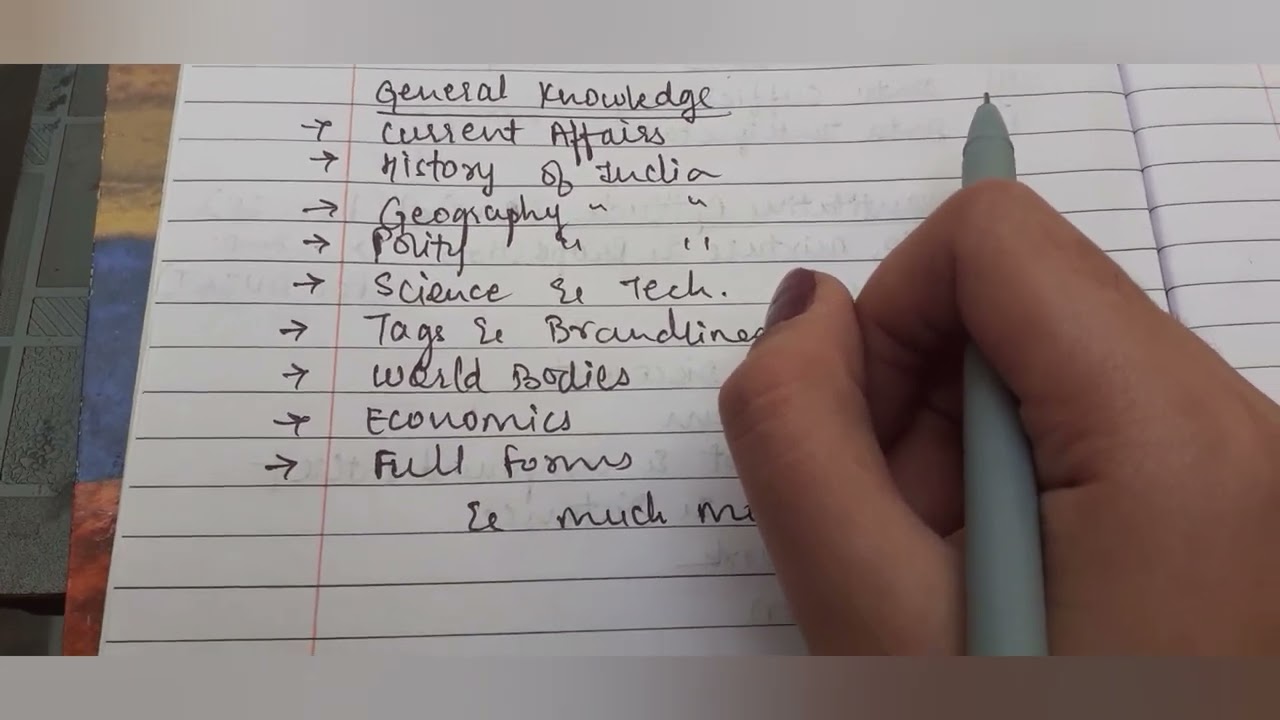 General Knowledge
→ Current Affairs
→ History of India
→ Geography " "
→ Polity " "
→ Science & Tech.
→ Tags & Brandlines
→ World Bodies
→ Economics
→ Full Forms
& much